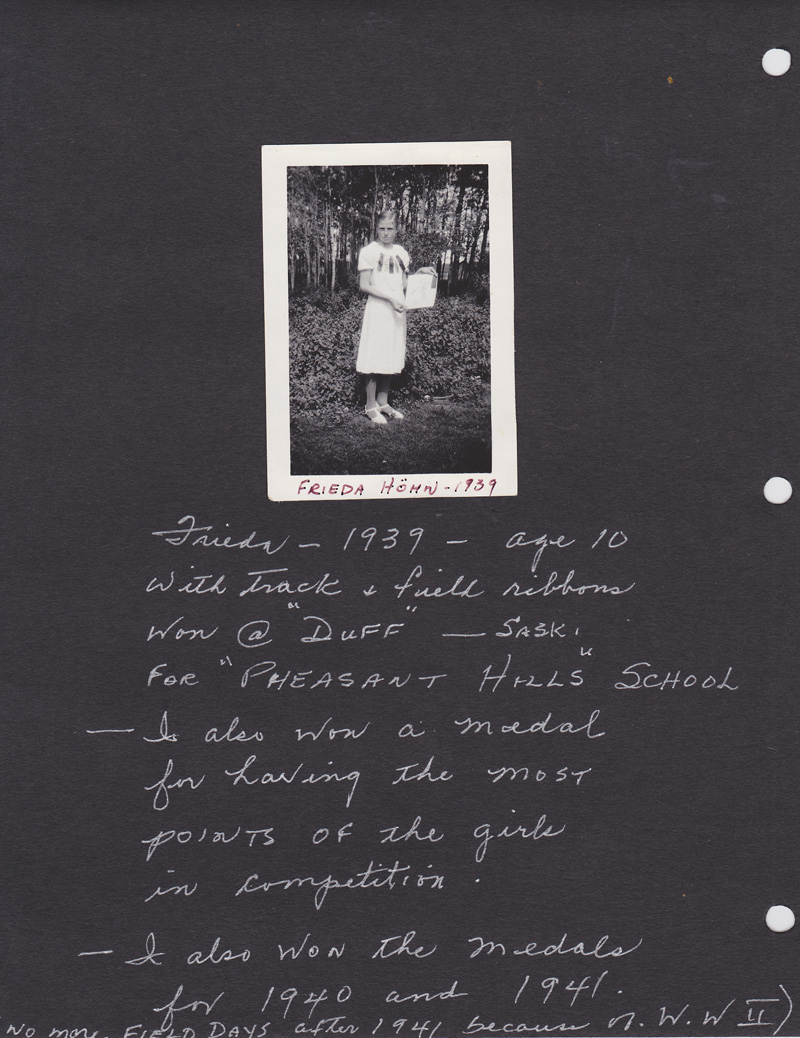 FRIEDA HÖHN - 1939
Frieda - 1939 - age 10
with track & field ribbons
won @ "DUFF" - SASK.
FOR "PHEASANT HILLS" SCHOOL
- I also won a medal
for having the most
points of the girls
in competition.
- I also won the medals
for 1940 and 1941.
(No more FIELD DAYS after 1941 because of W.W II)